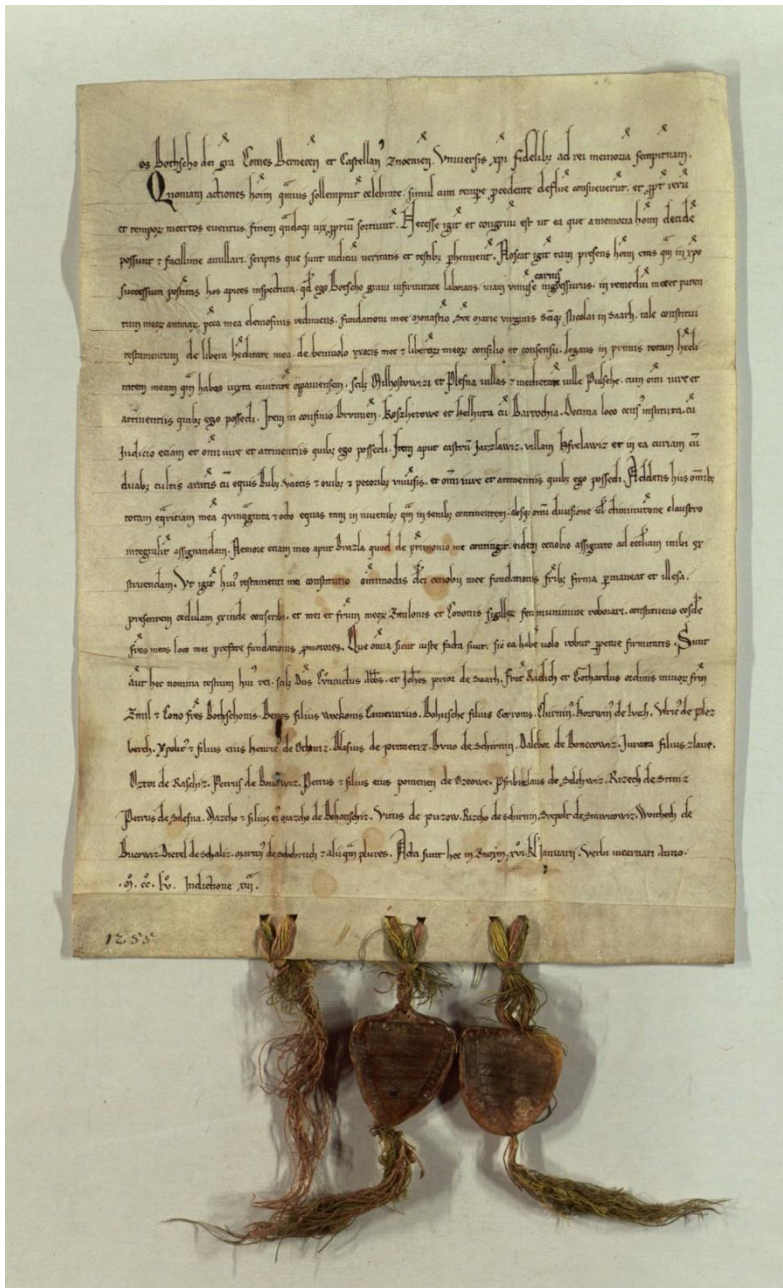 os Bothscho dei gra Comes Bernecen et Castellan Znoemen. Universis xpi fidelibz ad rei memoria sempitnam.
Quoniam actiones hoim qmuis sollempnit celebrate. simul cum tempe pcedente defluе consueverūt. et ppt rerū
et tempor incertos eventus. finem qndoqz vix pprium sortiunt. Necesse igit et congruū est ut ea que a memoria hoim decidē
possunt et facillime anullari. scriptis que sunt indiciū veritatis et testibz phennent. Noscat igit tam presens hoim etas qm in xpo
successura posteritas hos apices inspectura. qd ego Botscho gravi infirmitate laborans. viam universe carnis ingressurus. in remediū mee et paren
tum meor animar. pcca mea elemosinis redimens. fundationi mee monastio sce Marie virginis sciqz Nicolai in Saarh. tale constitui
testamentum de libera heditate mea. de benivolo uxoris mee et liberor meor consilio et consensu. legans in primis totam hedi
tatem meam qm habeo iuxta civitatē oppaviensem. scilz Milhostowizi et Plesna villas et medietatē ville Pulsche. cum omi iure et
attinentiis quibz ego possedi. Item in confinio Brumen. Koszherowe et helhuta cū Barrochia. Decima loco censs instituta. cū
Judicio etiam et omi iure et attinentiis quibz ego possedi. Item aput castrū Jarzlawiz. villam Hselawiz et in ea curiam cū
duabz cultis aratis cū equis Bubz vaccis et ovibz et pecoribz universis. et omi iure et attinentiis quibz ego possedi. Addens hiis omibz
totam eqricitiam meā qvinqginta et octo equas tam in iuvenibz qm in senibz continentem. absqz omi divisione vl diminutione claustro
integralit assignandam. Nemore etiam meo aput Brazla quod de pimonio me contingit. eidem cenobio assignato ad eccliam inibi ex
struendam. Vt igit hui testamenti mei constitutio omimodis dci cenobii mee fundationis fribz firma pmaneat et illesa.
presentem cedulam exinde conscribi. et mei et frūm meor Zmilonis et Cononis sigillor feci munimine roborari. constituens eosdē
fres meos loco mei prefate fundationis pmotores. Que omia sicut iuste facta sunt. sic ea habē volo robur ppetue firmitatis. Sunt
aut hec nomina testium hui rei. scilz Dns abbs. et Johes prior de Saarh. Frat Radich et Gothardus ordinis minor frm
Zmil et Cono fres Bothschonis. Benes filius wockonis Camerarius. Bohusche filius Cerroms. de buzh. Vlric de plez
berch. et filius eius henric de. Blasius de. Bruno de Schirnin. Dalebor de Boncowiz. Jurata filius zlave.
de Raschiz. Petrus de Bouowiz. Petrus et filius eius pomenen de Ozoowe. Pribizlaus de Selchwiz. Razech de
Petrus de Solesna. Marcho et filius ei Marcho de Bohonschiz. Vitus de puzow. Razcho de schirnin. Svepolt de Stawicowiz. Woitbech de
Bucowiz. Dietel de schaliz. Martin de et alii qm plures. Acta sunt hec in Znoym. xvi. kl Januarii. Verbi incarnati anno.
.M. cc. lv. Indictione xiii.
1255